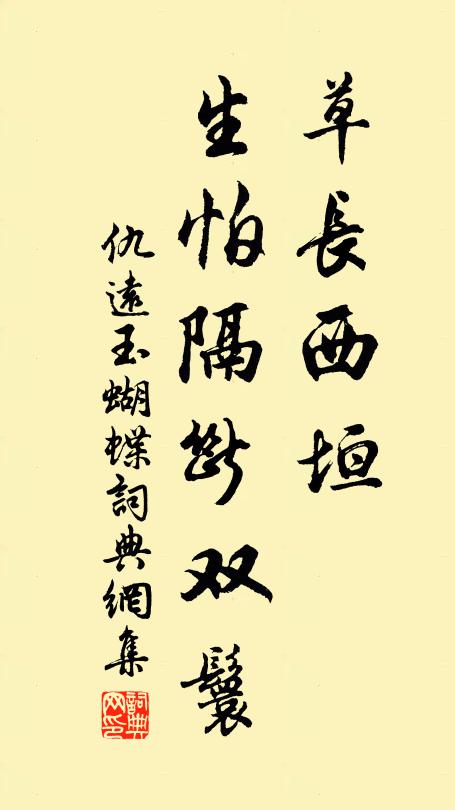 草長西垣
生怕隔断双鬟
仇遠玉蝴蝶詞典網集
詞典网印